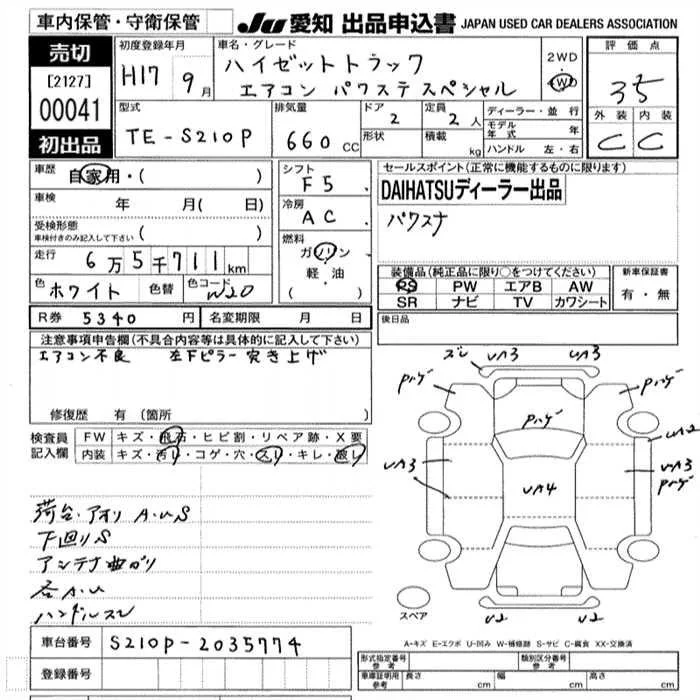 車内保管・守衛保管
JU 愛知 出品申込書 JAPAN USED CAR DEALERS ASSOCIATION
売切
[2127]
00041
初出品
初度登録年月
H17 9月
車名・グレード
ハイゼットトラック
エアコン パワステ スペシャル
2WD
4WD
評価点
35
外装 内装
C C
型式
TE-S210P
排気量
660 CC
ドア
2
定員
2人
形状
積載
kg
ディーラー・並行
モデル年式 年
ハンドル 左・右
車歴 自家用・( )
車検 年 月( 日)
受検形態
車検付きのみ記入して下さい ( )
走行 6万5千711km
色 ホワイト 色替 色コード W20
シフト
F5
冷房
AC
燃料
ガソリン
軽・油
( )
セールスポイント(正常に機能するものに限ります)
DAIHATSUディーラー出品
パワステ
装備品(純正品に限り○をつけてください)
PS PW エアB AW
SR ナビ TV カワシート
新車保証書
有・無
R券 5340円 名変期限 月 日
後日品
注意事項申告欄(不具合内容等は具体的に記入して下さい)
エアコン不良 左下ピラー突き上げ
修復歴 有(箇所
検査員記入欄
FW キズ・飛石・ヒビ割・リペア跡・X要
内装 キズ・汚れ・コゲ・穴・スレ・キレ・破レ
荷台・アオリ A・U S
下回りS
アンテナ曲がり
各A・U
ハンドルスレ
ズレ UA3 UA3
Pハゲ Pハゲ
Pハゲ
UA2
UA3 UA3
Pハゲ
UA4
U2 U2
スペア
A-キズ E-エクボ U-凹み W-補修跡 S-サビ C-腐食 XX-交換済
車台番号 S210P-2035774
登録番号
形式指定番号 参考
類別区分番号 参考
車庫証明用 参考 長さ cm 幅 cm 高さ cm